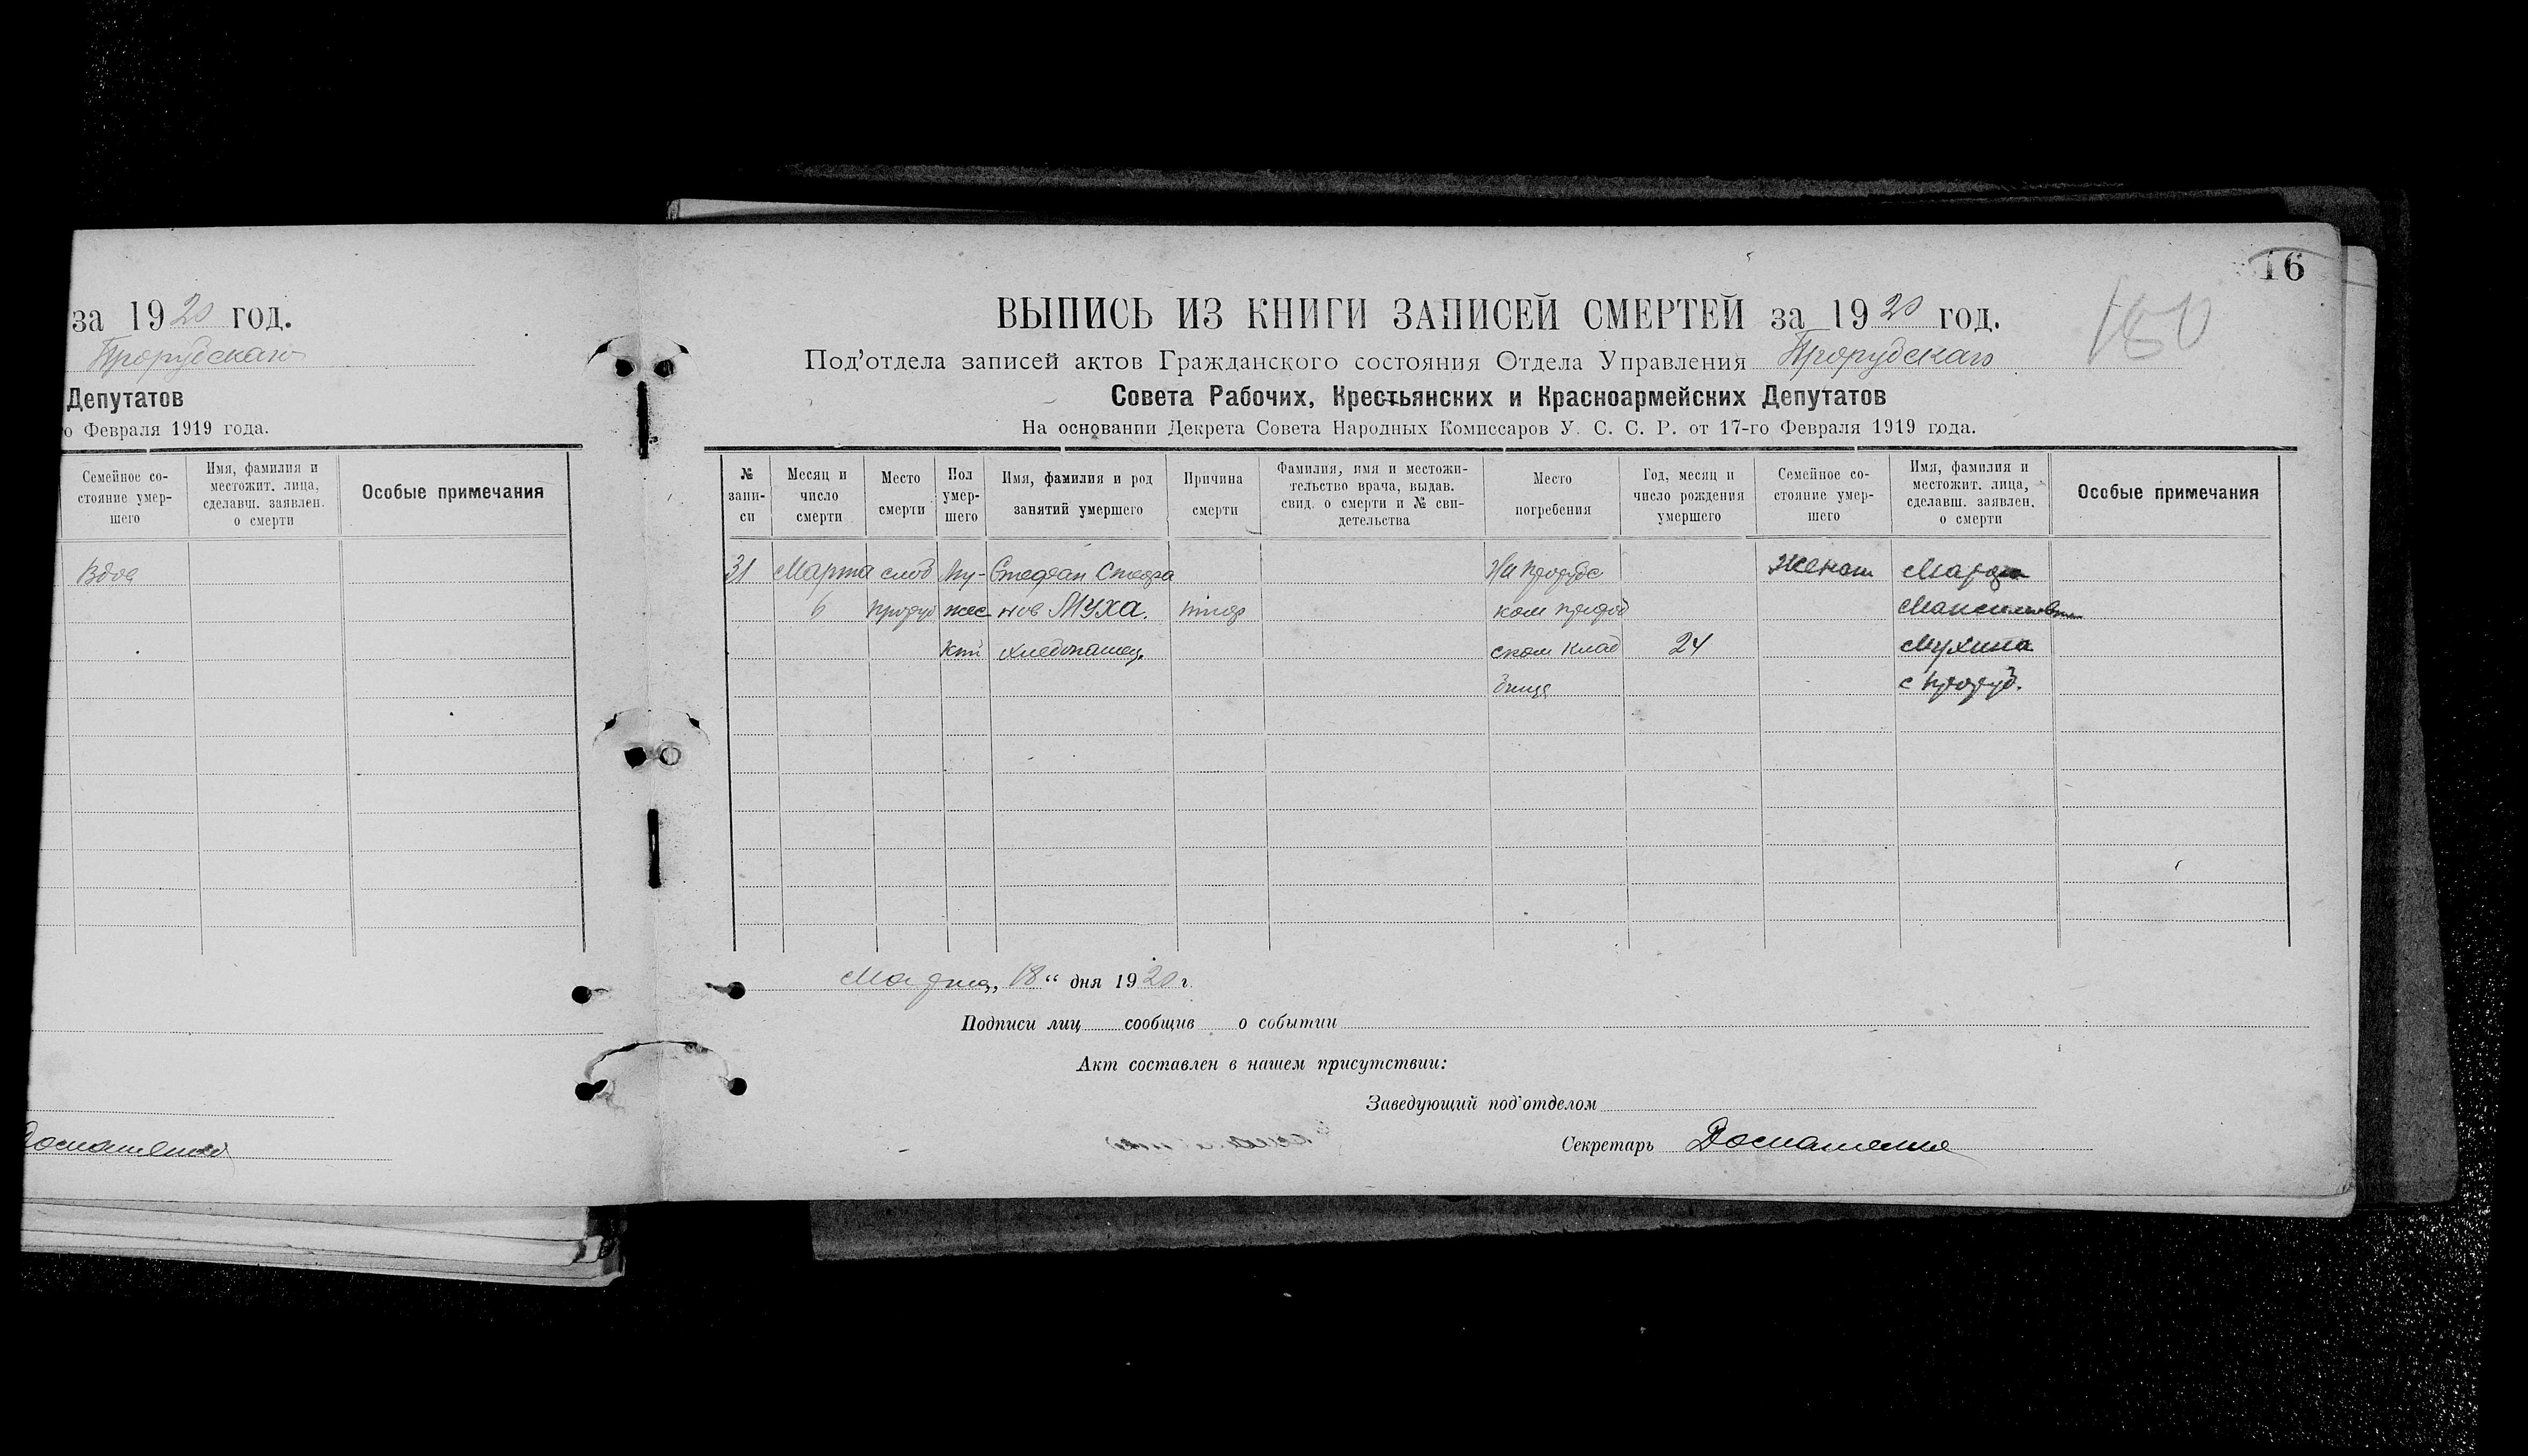 за 1920 год.
Прорубскаго
Депутатов
го Февраля 1919 года.
Семейное со-
стояние умер-
шего
Имя, фамилия и
местожит. лица,
сделавш. заявлен.
о смерти
Особые примечания
Вдов
16
160
ВЫПИСЬ ИЗ КНИГИ ЗАПИСЕЙ СМЕРТЕЙ за 1920 год.
Под'отдела записей актов Гражданского состояния Отдела Управления Прорубскаго
Совета Рабочих, Крестьянских и Красноармейских Депутатов
На основании Декрета Совета Народных Комиссаров У. С. С. Р. от 17-го Февраля 1919 года.
№
запи-
си
Месяц и
число
смерти
Место
смерти
Пол
умер-
шего
Имя, фамилия и род
занятий умершего
Причина
смерти
Фамилия, имя и местожи-
тельство врача, выдав.
свид. о смерти и № сви-
детельства
Место
погребения
Год, месяц и
число рождения
умершего
Семейное со-
стояние умер-
шего
Имя, фамилия и
местожит. лица,
сделавш. заявлен.
о смерти
Особые примечания
31
Марта
6
слоб
Проруб
Му-
жес
кой
Стефан Стефа
нов Муха.
хлебопашец
тиф
На Прорубс
ком приход
ском клад
бище
24
Женат
Марфа
Максимовна
Мухина
с Проруб.
Марта „18“ дня 1920 г.
Подписи лиц сообщив о событии
Акт составлен в нашем присутствии:
Заведующий под'отделом
Секретарь